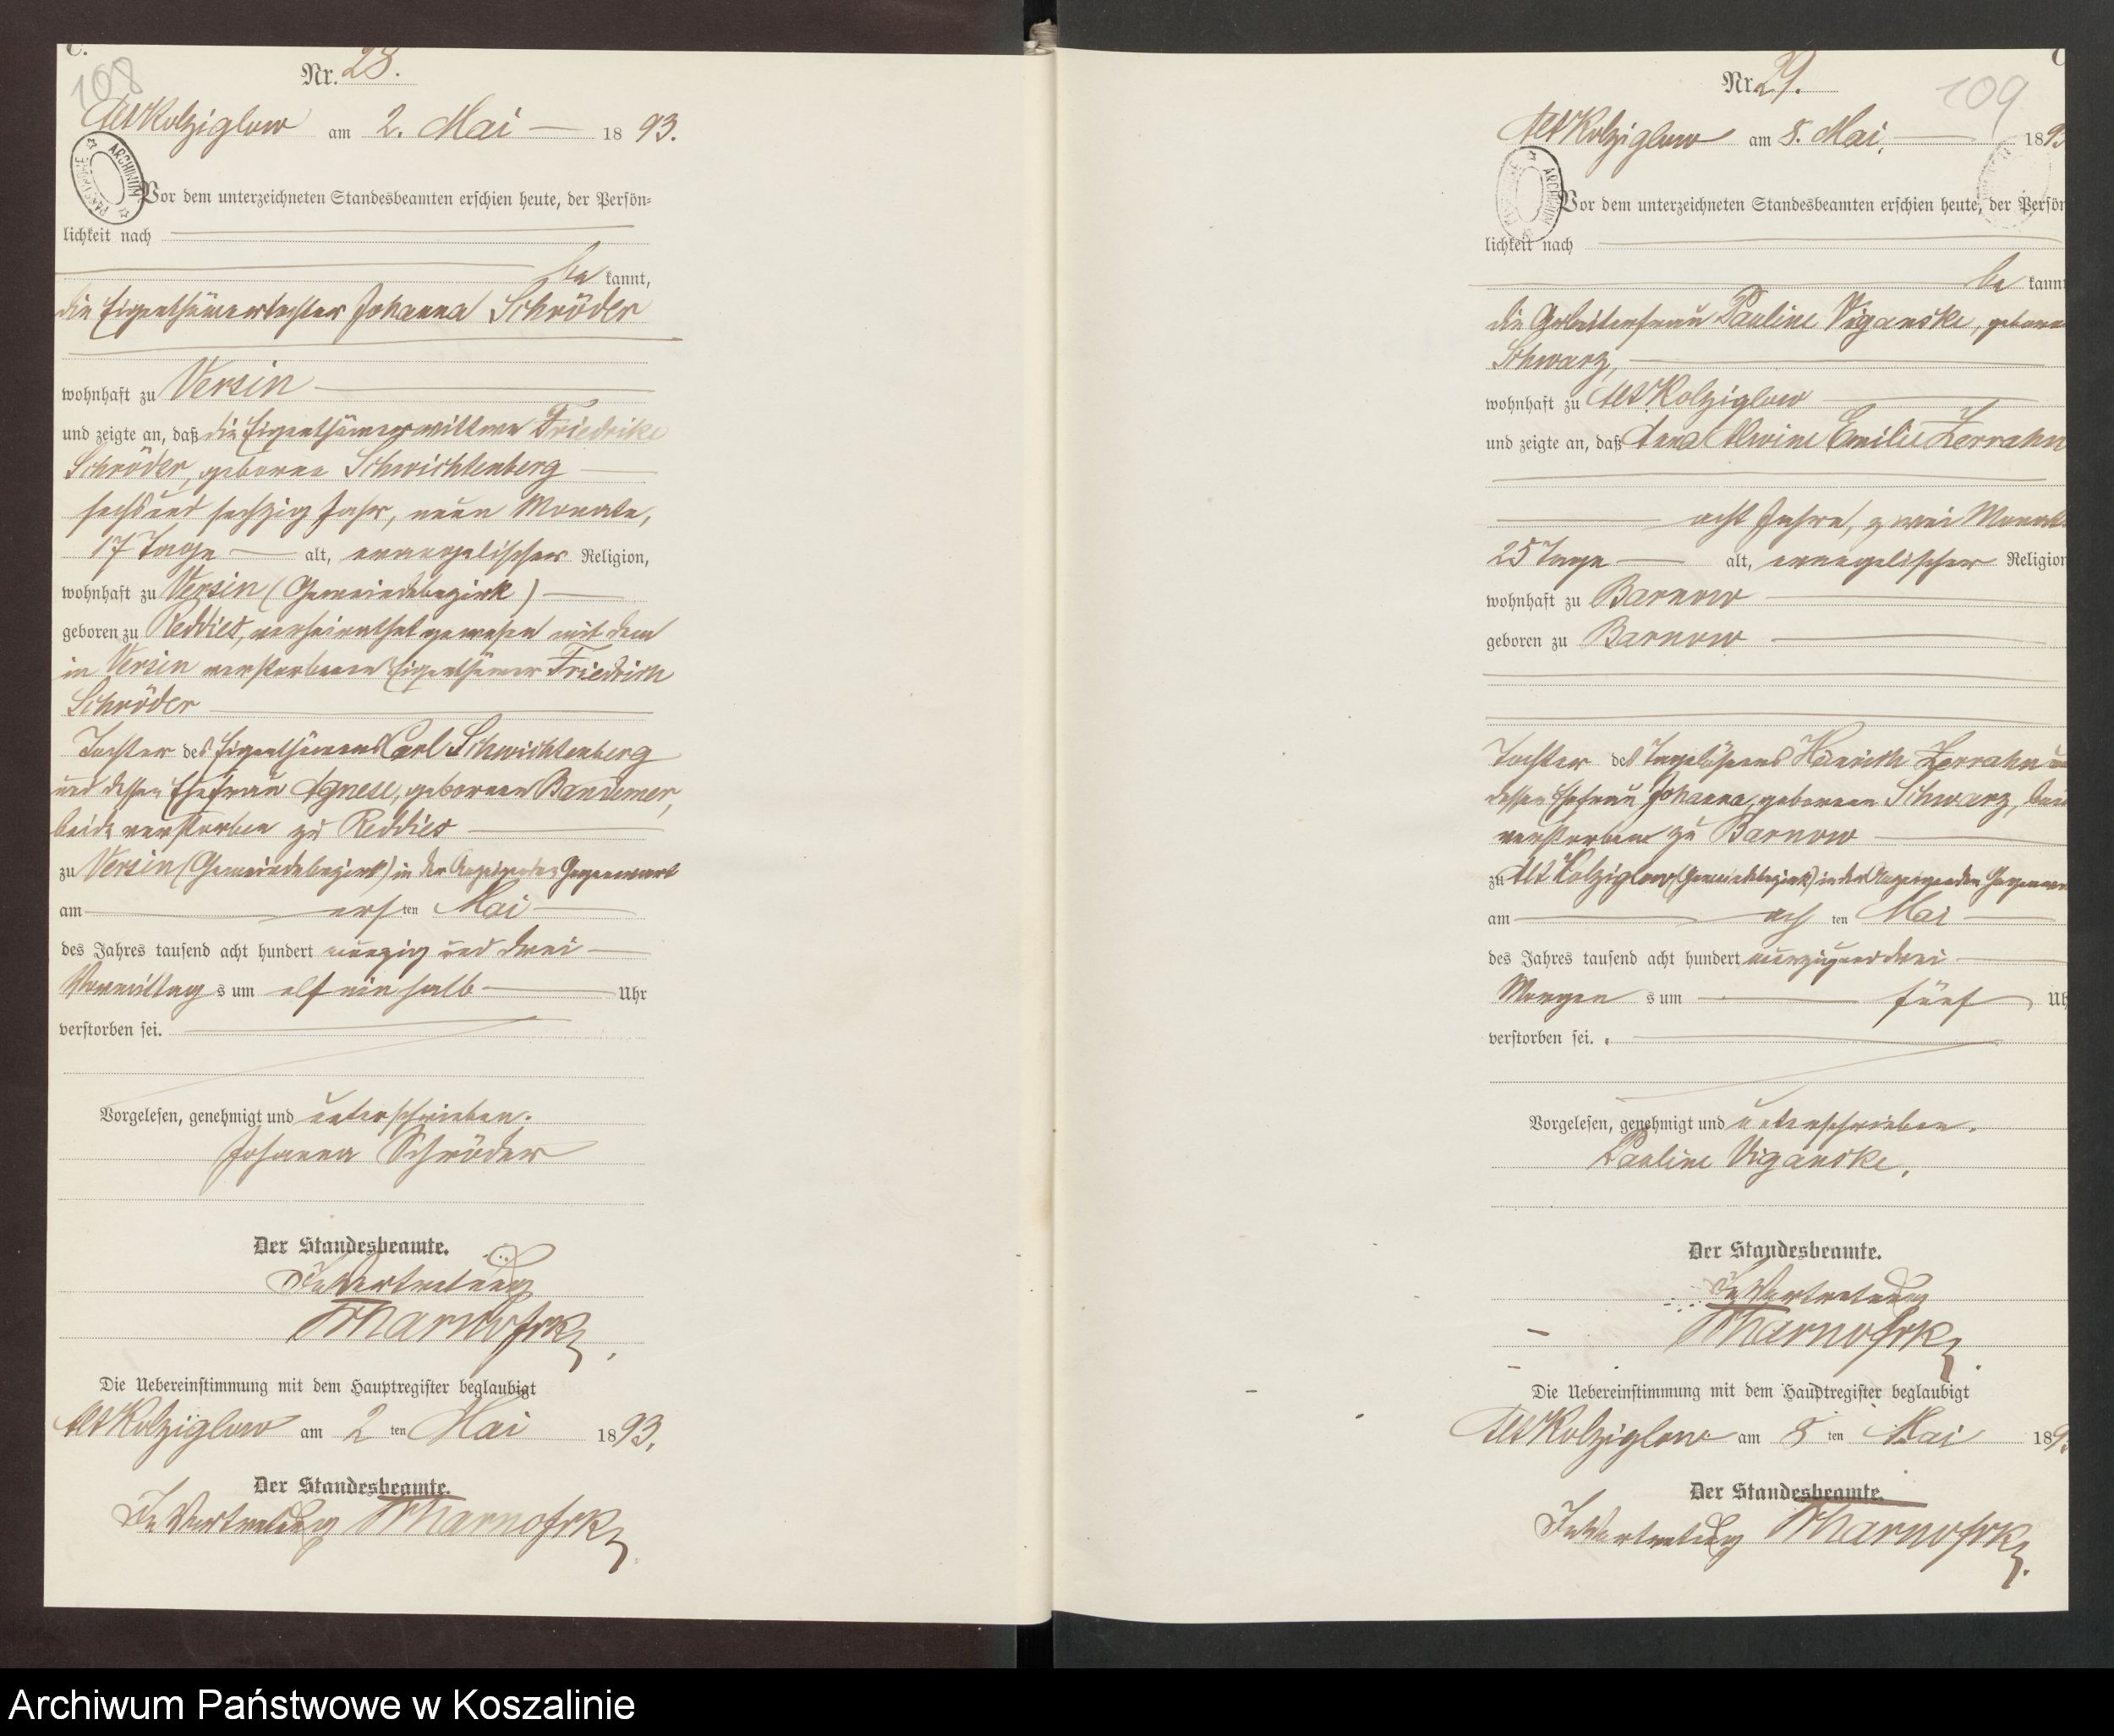 C.
108
Nr. 28.
Alt Kolziglow am 2. Mai 1893.
Vor dem unterzeichneten Standesbeamten erschien heute, der Persön-
lichkeit nach
be kannt,
die Eigenthümertochter Johanna Schröder
wohnhaft zu Versin
und zeigte an, daß die Eigenthümerwittwe Friedrike
Schröder, geborne Schwichtenberg
sechsund sechzig Jahr, neun Monate,
17 Tage alt, evangelischer Religion,
wohnhaft zu Versin (Gemeindebezirk)
geboren zu Reddies, verheirathet gewesen mit dem
in Versin verstorbenen Eigenthümer Friedrich
Schröder
Tochter des Eigenthümers Carl Schwichtenberg
und dessen Ehefrau Agnese, geborenen Bandemer,
beide verstorben zu Reddies
zu Versin (Gemeindebezirk) in der Anzeigendes Gegenwart
am ersten Mai
des Jahres tausend acht hundert neunzig und drei
Vormittag s um elf ein halb Uhr
verstorben sei.
Vorgelesen, genehmigt und unterschrieben.
Johanna Schröder
Der Standesbeamte.
In Vertretung
Die Uebereinstimmung mit dem Hauptregister beglaubigt
Alt Kolziglow am 2 ten Mai 1893.
Der Standesbeamte.
In Vertretung
ARCHIWUM PAŃSTWOWE
109
Nr. 29.
Alt Kolziglow am 8. Mai. 189
Vor dem unterzeichneten Standesbeamten erschien heute, der Persön
lichkeit nach
be kannt
die Arbeiterfrau Pauline Viganske, geborne
Schwarz,
wohnhaft zu Alt Kolziglow
und zeigte an, daß Anna Alwine Emilie Zerrahn
acht Jahre, zwei Monate
25 Tage alt, evangelischer Religion
wohnhaft zu Barnow
geboren zu Barnow
Tochter des Tagelöhners Heinrich Zerrahn
dessen Ehefrau Johanna, geborenen Schwarz, beide
verstorben zu Barnow
zu Alt Kolziglow (Gemeindebezirk) in der Anzeigenden Gegenwart
am ach ten Mai
des Jahres tausend acht hundert neunzigunddrei
Morgen s um fünf Uh
verstorben sei.
Vorgelesen, genehmigt und unterschrieben.
Pauline Viganske.
Der Standesbeamte.
In Vertretung
Die Uebereinstimmung mit dem Hauptregister beglaubigt
Alt Kolziglow am 8 ten Mai 189
Der Standesbeamte.
In Vertretung
Archiwum Państwowe w Koszalinie